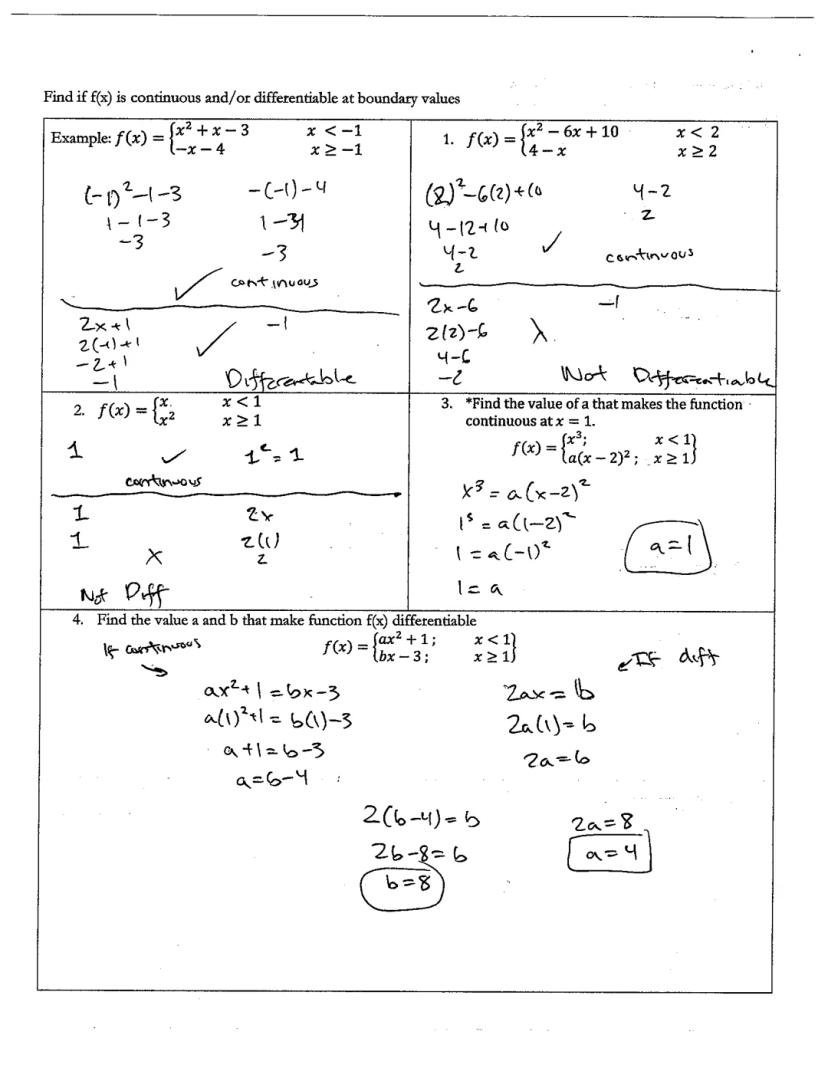 Find if f(x) is continuous and/or differentiable at boundary values
Example: f(x) = {x² + x − 3    x < −1
{−x − 4    x ≥ −1
(-1)²-1-3    -(-1)-4
1-1-3    1-4
-3    -3
✓ continuous
2x+1    -1
2(-1)+1 ✓
-2+1
-1    Differentable
1. f(x) = {x² − 6x + 10    x < 2
{4 − x    x ≥ 2
(2)²-6(2)+10    4-2
4-12+10    2
4-2 ✓ continuous
2
2x-6    -1
2(2)-6 X
4-6
-2    Not Differentiable
2. f(x) = {x    x < 1
{x²    x ≥ 1
1 ✓ 1² = 1
continuous
1    2x
1    2(1)
X    2
Not Diff
3. *Find the value of a that makes the function
continuous at x = 1.
f(x) = {x³;    x < 1}
{a(x − 2)²;    x ≥ 1}
x³ = a(x-2)²
1³ = a(1-2)²
1 = a(-1)²    a=1
1 = a
4. Find the value a and b that make function f(x) differentiable
If continuous    f(x) = {ax² + 1;    x < 1}
{bx − 3;    x ≥ 1}    If diff
ax²+1 = bx-3    2ax = b
a(1)²+1 = b(1)-3    2a(1) = b
a+1 = b-3    2a = b
a = b-4
2(b-4) = b    2a = 8
2b-8 = b    a = 4
b = 8